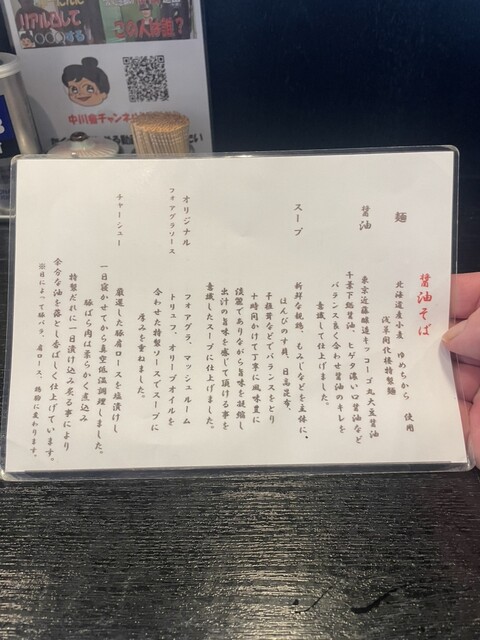 リアルとして
〇〇〇する!
この人は誰?
醤油そば
麺
北海道産小麦 ゆめちから 使用
浅草開化楼特製麺
醤油
東京近藤醸造キッコーゴ丸大豆醤油
千葉下総醤油、ヒゲタ濃い口醤油など
バランス良く合わせ醤油のキレを
意識して仕上げました。
スープ
新鮮な親鶏、もみじなどを主体に、
はんぴのす貝、日高昆布、
干椎茸などでバランスをとり
十時間かけて丁寧に風味豊に
淡麗でありながら旨味を凝縮し
出汁の旨味を感じて頂ける事を
意識したスープに仕上げました。
オリジナル
フォアグラソース
フォアグラ、マッシュルーム
トリュフ、オリーブオイルを
合わせた特製ソースでスープに
厚みを重ねました。
チャーシュー
厳選した豚肩ロースを塩漬けし
一日寝かせてから真空低温調理しました。
豚ばら肉は柔らかく煮込み
特製だれに一日漬け込み炙る事により
余分な油を落とし香ばしく仕上げています。
※日によって豚バラ、肩ロース、鶏胸に変わります。